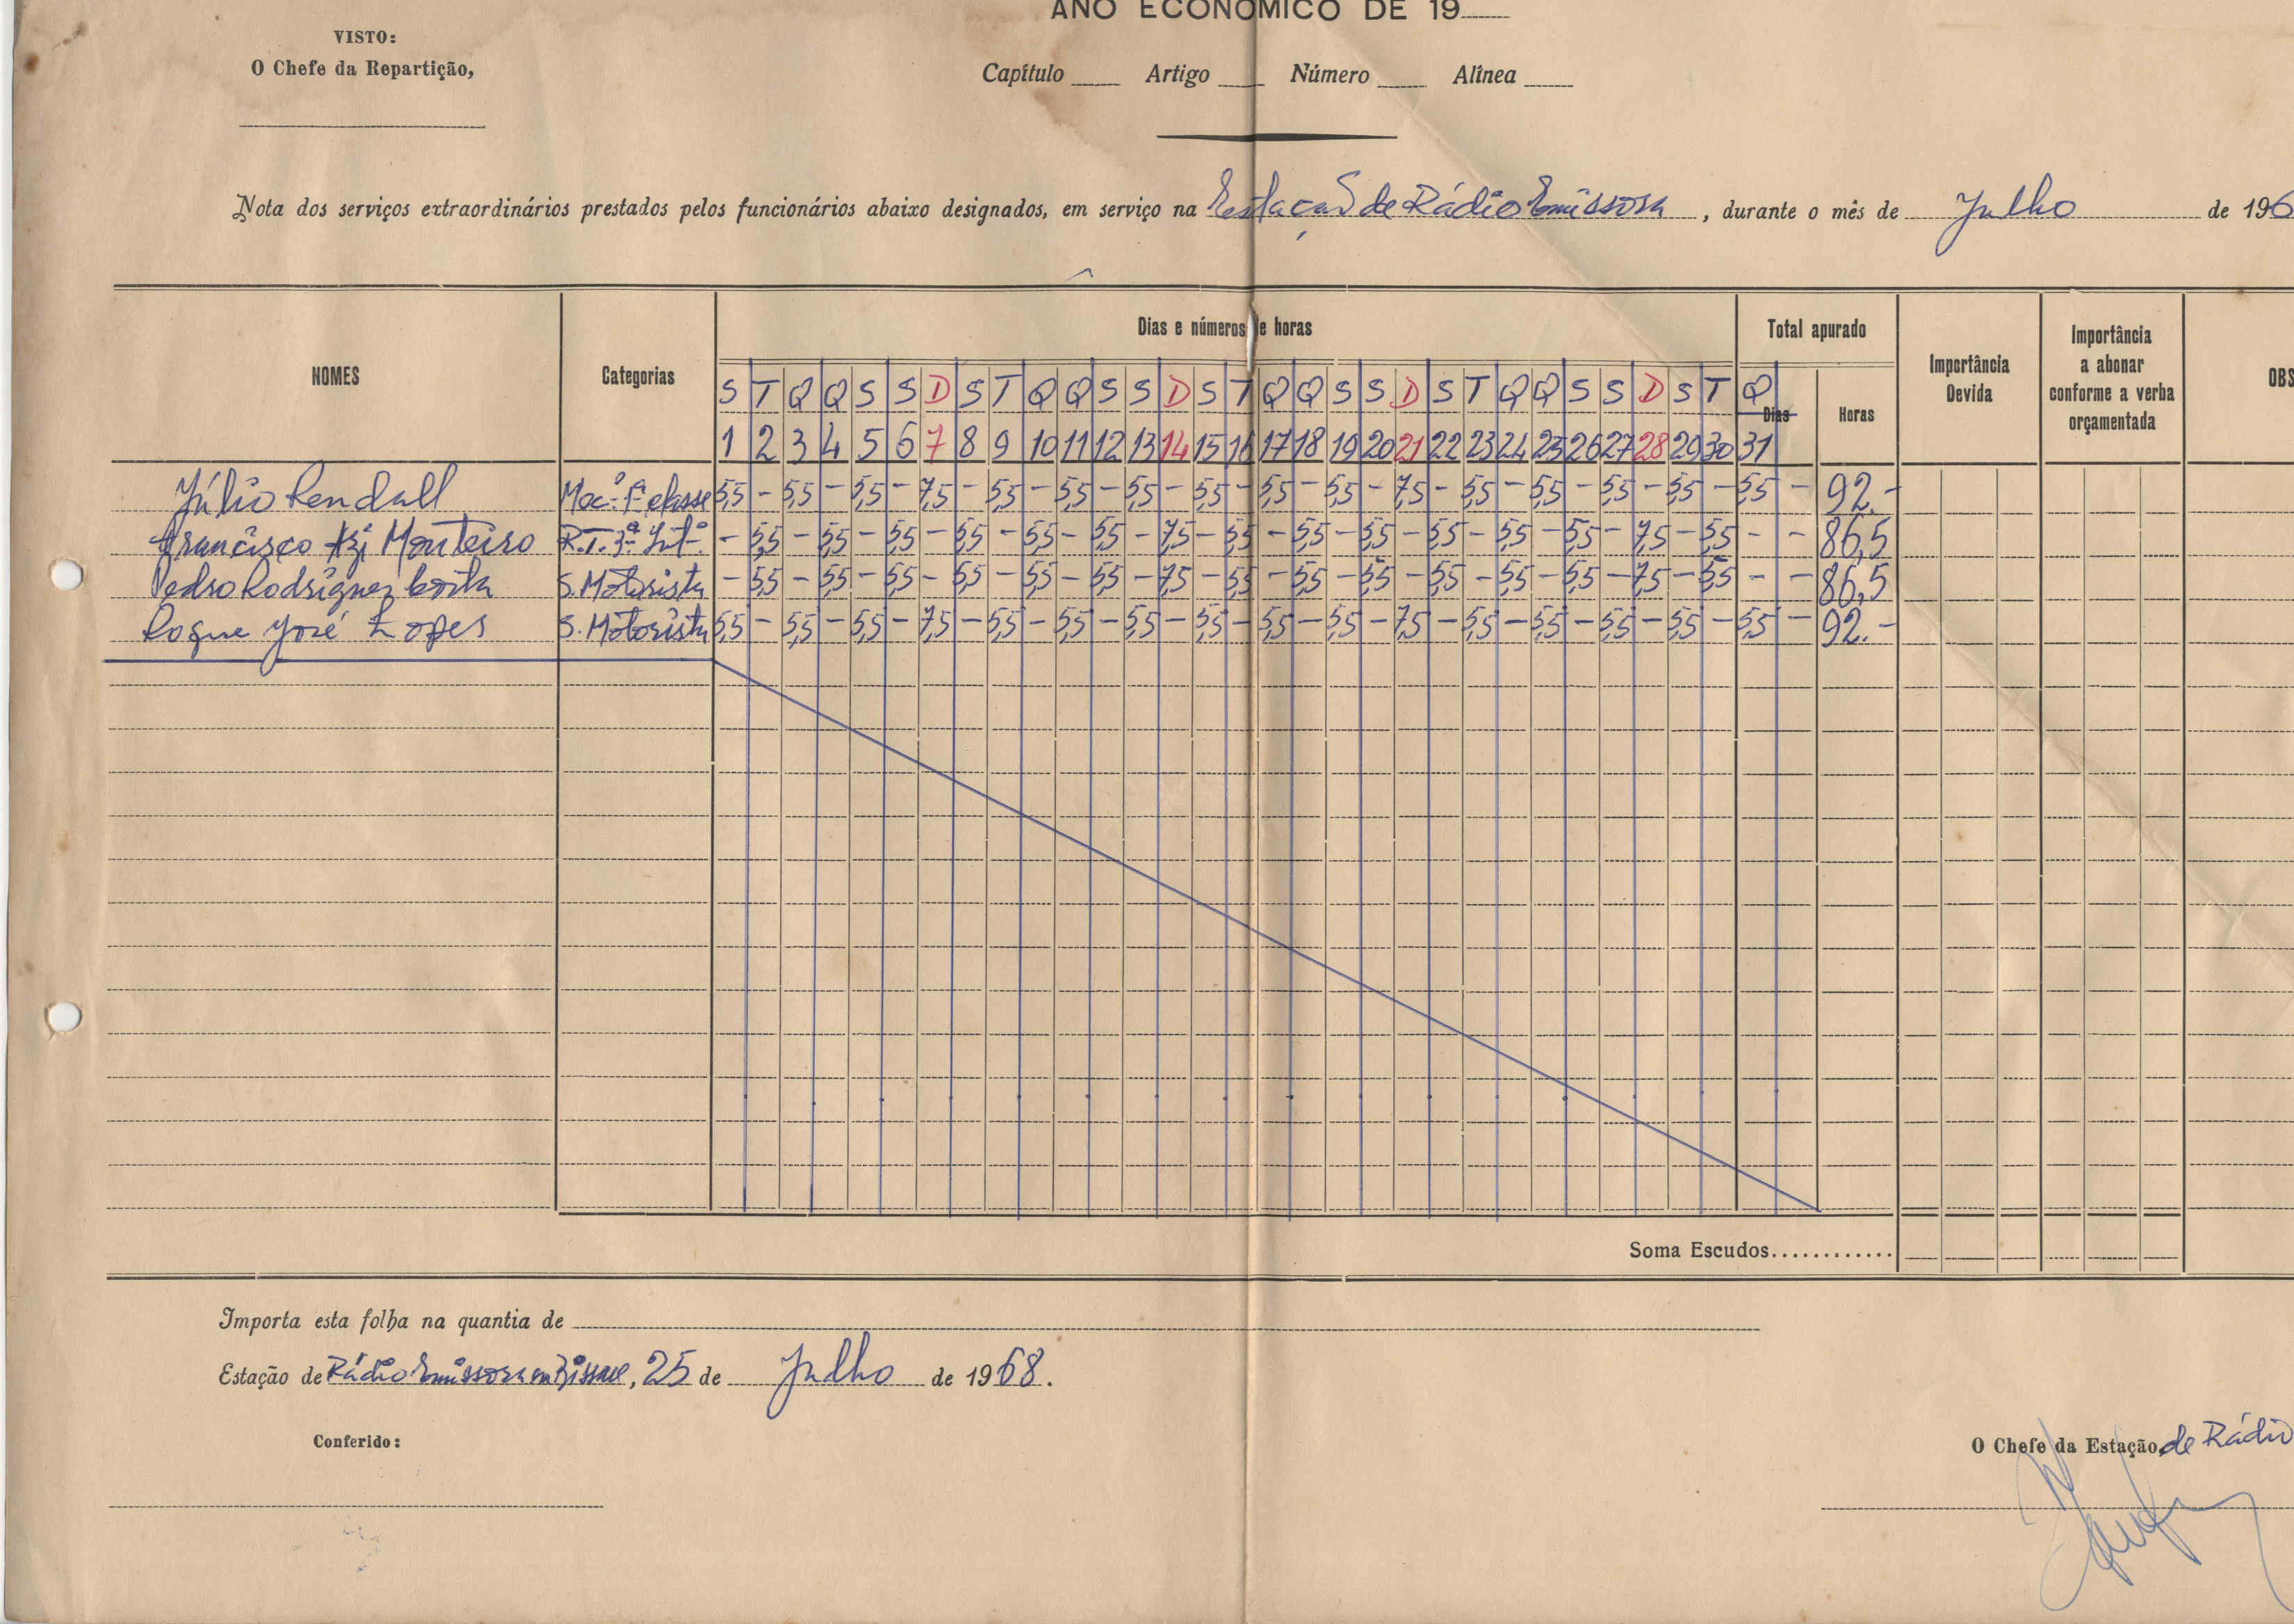 ANO ECONÓMICO DE 19
VISTO:
O Chefe da Repartição,
Capítulo Artigo Número Alínea
Nota dos serviços extraordinários prestados pelos funcionários abaixo designados, em serviço na Estação de Rádio Emissora, durante o mês de Julho de 196
NOMES Categorias Dias e números de horas Total apurado Importância Devida Importância a abonar conforme a verba orçamentada OBS
S T Q Q S S D S T Q Q S S D S T Q Q S S D S T Q Q S S D S T Q Dias Horas
1 2 3 4 5 6 7 8 9 10 11 12 13 14 15 16 17 18 19 20 21 22 23 24 25 26 27 28 29 30 31
Júlio Rendall Mec.º 1ª classe 5,5 - 5,5 - 5,5 - 7,5 - 5,5 - 5,5 - 5,5 - 5,5 - 5,5 - 5,5 - 7,5 - 5,5 - 5,5 - 5,5 - 5,5 - 5,5 - 92.-
Francisco Monteiro R.T. 3ª - 5,5 - 5,5 - 5,5 - 5,5 - 5,5 - 5,5 - 7,5 - 5,5 - 5,5 - 5,5 - 5,5 - 5,5 - 5,5 - 7,5 - 5,5 - - 86,5
Pedro Rodrigues Costa S. Motorista - 5,5 - 5,5 - 5,5 - 5,5 - 5,5 - 5,5 - 7,5 - 5,5 - 5,5 - 5,5 - 5,5 - 5,5 - 5,5 - 7,5 - 5,5 - - 86,5
Roque José Lopes S. Motorista 5,5 - 5,5 - 5,5 - 7,5 - 5,5 - 5,5 - 5,5 - 5,5 - 5,5 - 5,5 - 7,5 - 5,5 - 5,5 - 5,5 - 5,5 - 5,5 - 92.-
Soma Escudos............
Importa esta folha na quantia de
Estação de Rádio Emissora em Bissau, 25 de Julho de 1968.
Conferido:
O Chefe da Estação de Rádio